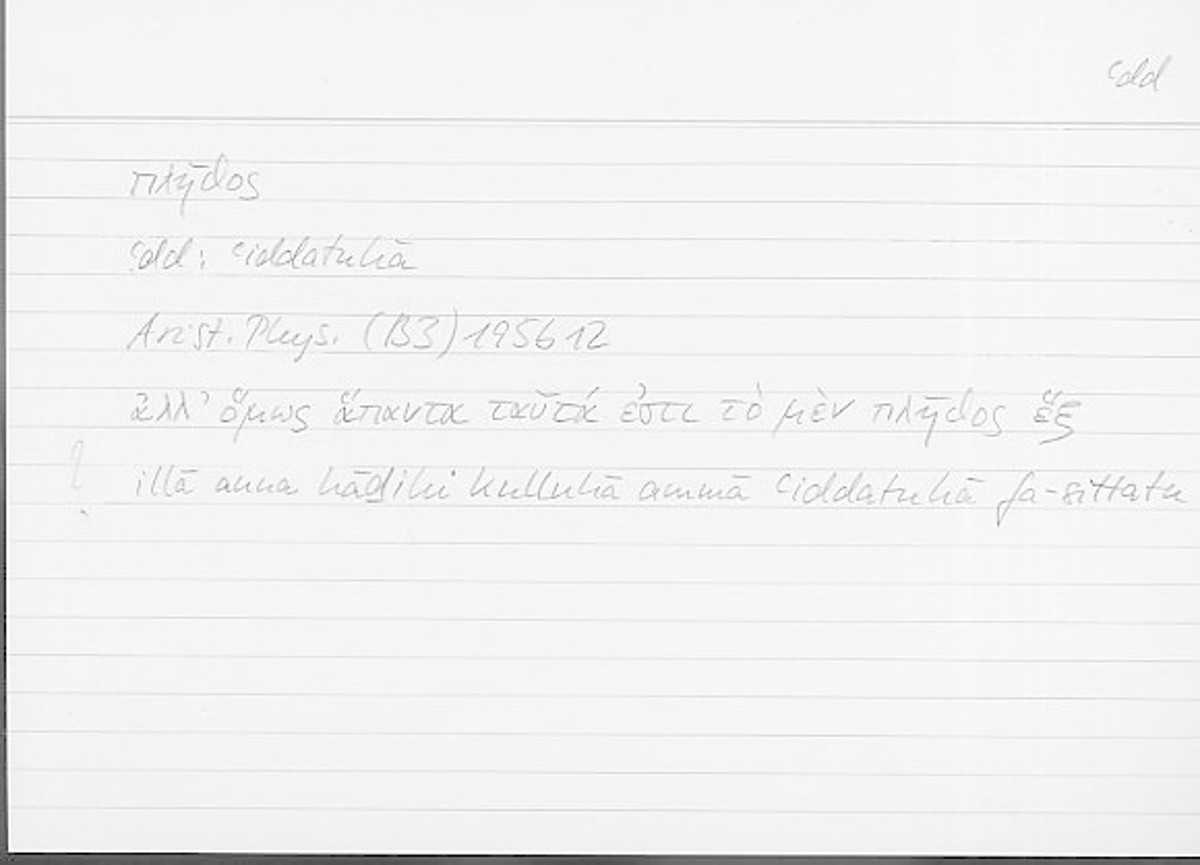 ʿdd
πλῆθος
ʿdd: ʿiddatuhā
Arist. Phys. (B3) 195b12
ἀλλ’ ὅμως ἅπαντα ταῦτά ἐστι τὸ μὲν πλῆθος ἕξ
! illā anna hāḏihi kulluhā ammā ʿiddatuhā fa-sittatu